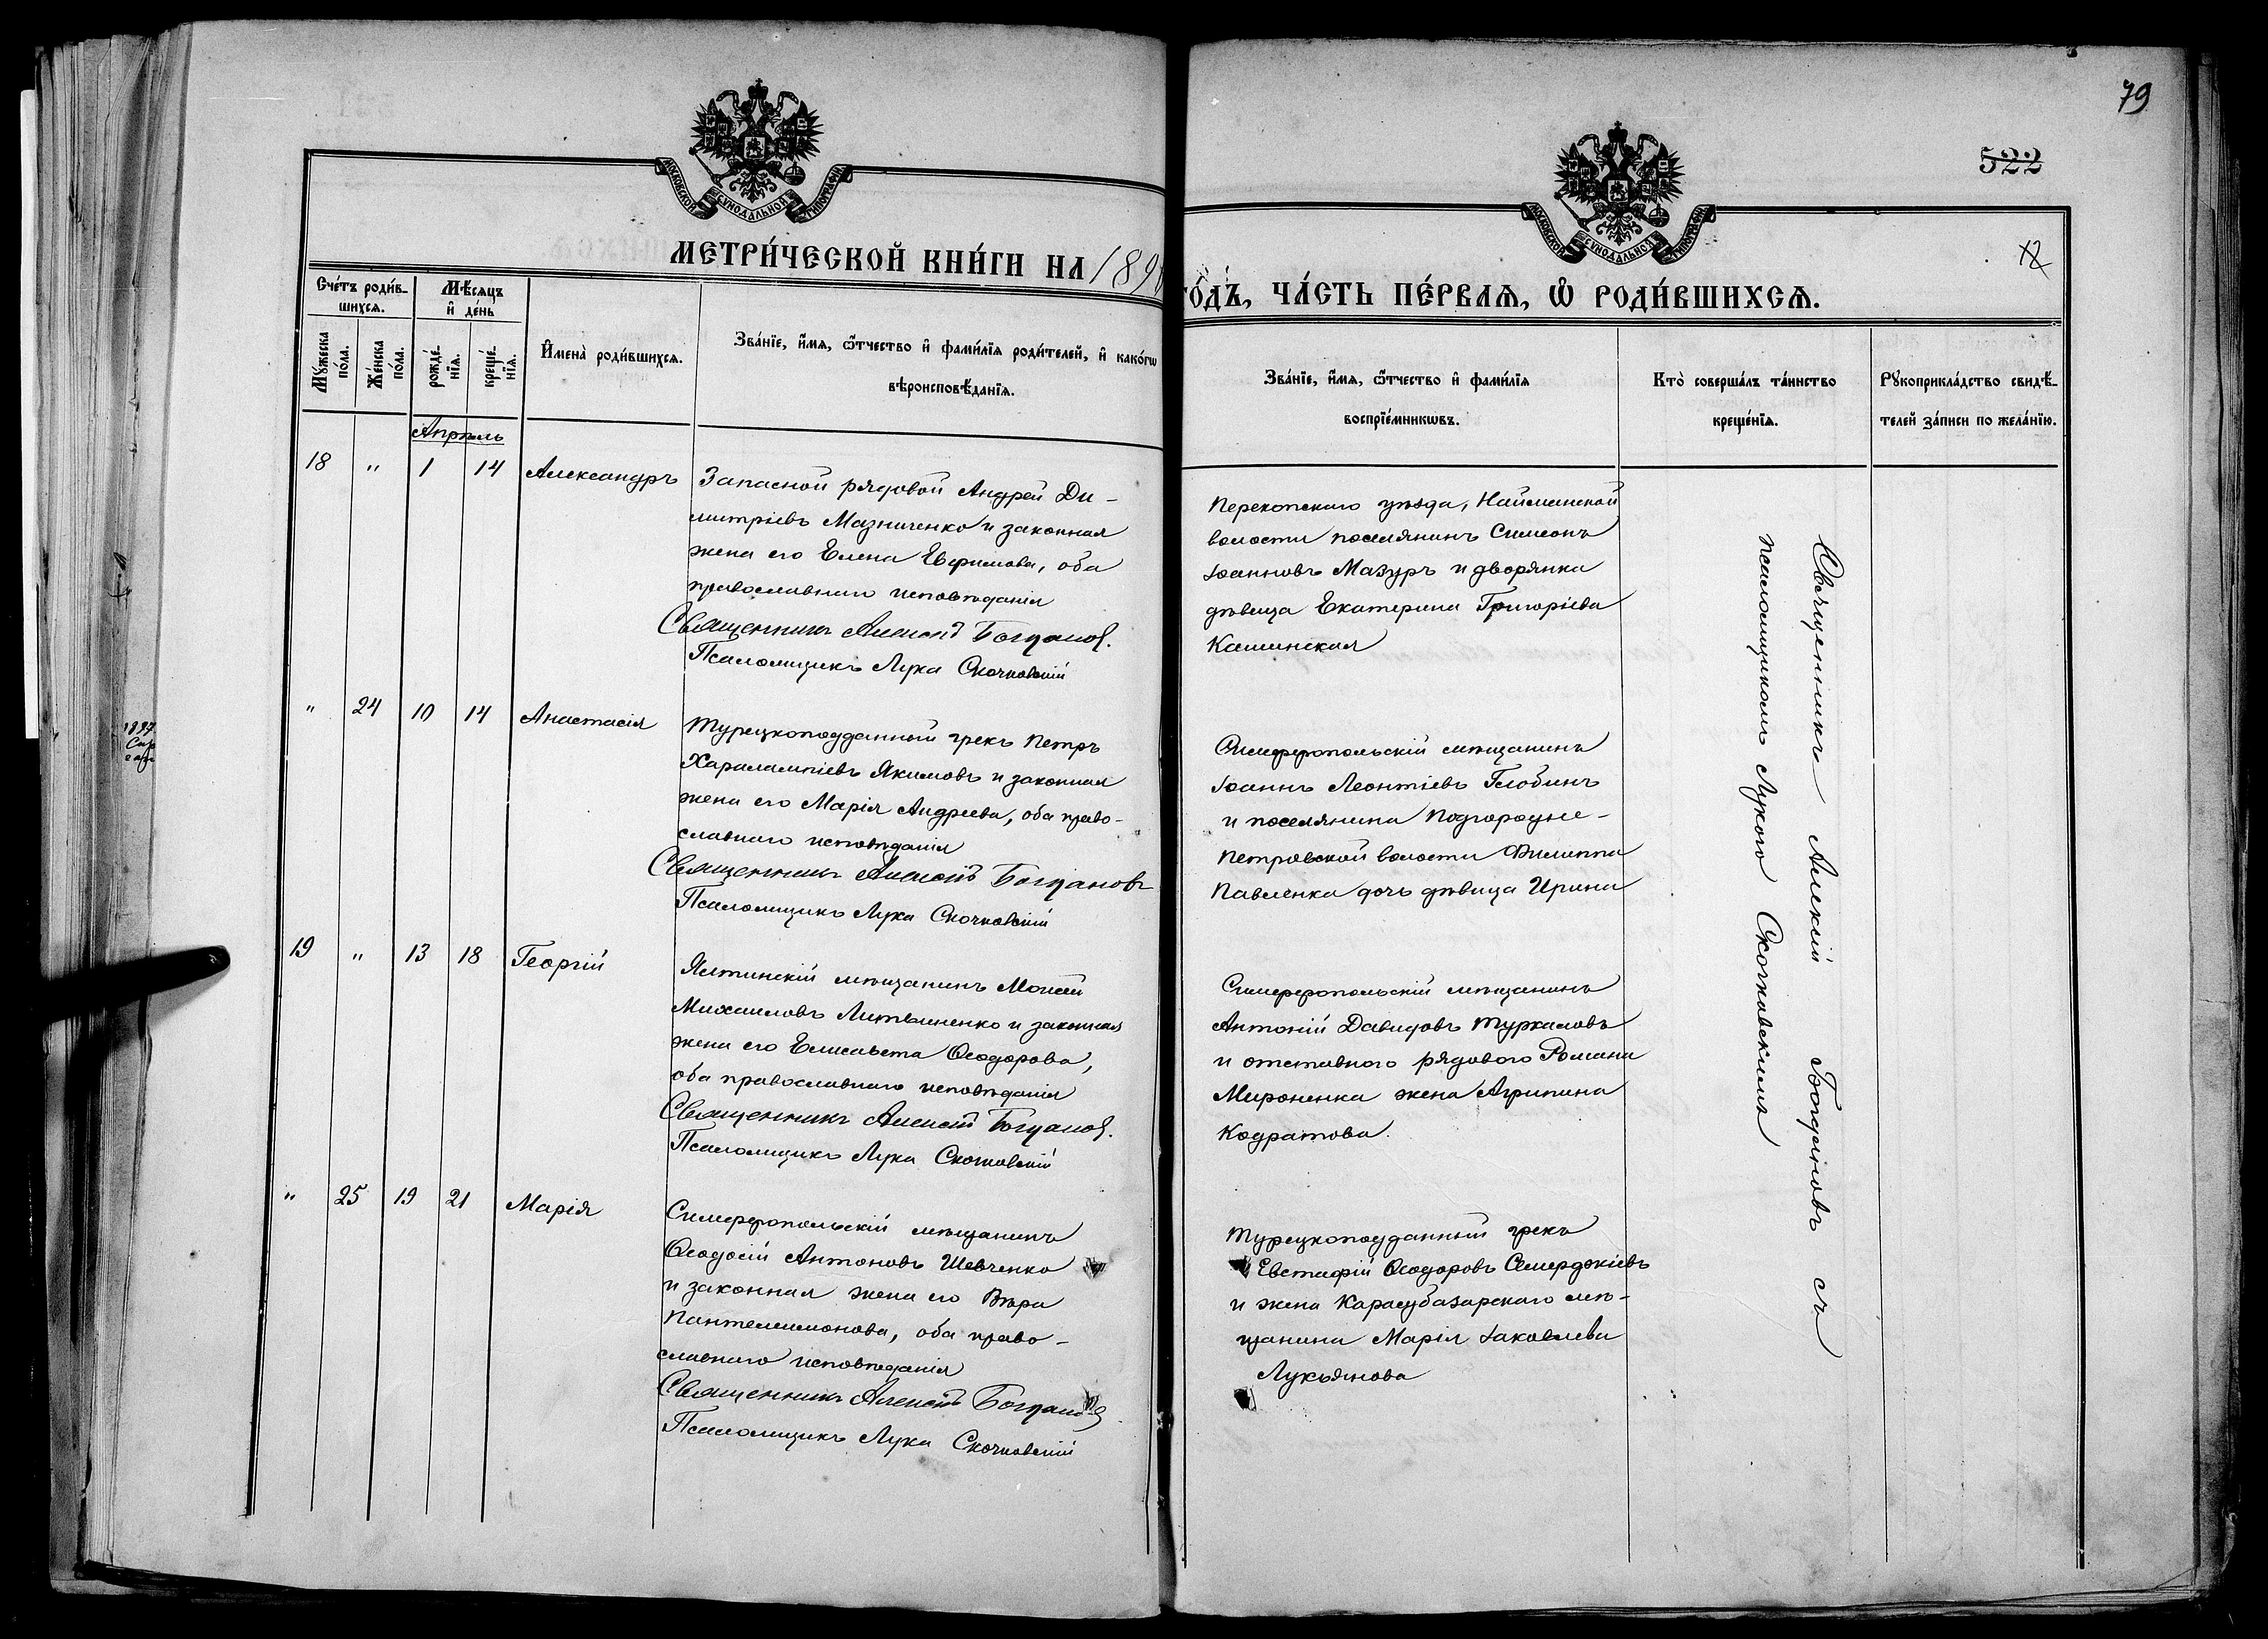 79
522
12
МОСКОВСКОЙ СѴНОДАЛЬНОЙ ТИПОГРАФІИ
МЕТРИ́ЧЕСКОЙ КНИ́ГИ НА 189
МОСКОВСКОЙ СѴНОДАЛЬНОЙ ТИПОГРАФІИ
ГО́ДЪ, ЧА́СТЬ ПЕ́РВАЯ, Ѡ҆ РОДИ́ВШИХСЯ.
Сче́тъ роди́в-
шихся.
Мѣ́сяцъ
и҆ де́нь
Мꙋ́жеска
по́ла.
Же́нска
по́ла.
рожде́-
нїя.
креще́-
нїя.
И҆мена̀ роди́вшихся.
Зва́нїе, и҆́мя, ѻ҆́тчество и҆ фами́лїя роди́телей, и҆ како́гѡ
вѣроисповѣ́данїя.
Зва́нїе, и҆́мя, ѻ҆́тчество и҆ фами́лїя
воспрїе́мникѡвъ.
Кто̀ соверша́лъ та́инство
креще́нїя.
Рꙋкоприкла́дство свидѣ́-
телей за́писи по жела́нїю.
Апрѣль
18 " 1 14 Александръ
Запасной рядовой Андрей Ди-
митріевъ Мазниченко и законная
жена его Елена Евфимова, оба
православнаго исповѣданія
Священникъ Алексій Богданов.
Псаломщикъ Лука Скочковскій
Перекопскаго уѣзда, Найманской
волости поселянинъ Симеонъ
Іоанновъ Мазуръ и дворянка
дѣвица Екатерина Григоріева
Кашинская
" 24 10 14 Анастасія
Турецкоподданный грекъ Петръ
Харалампіевъ Якимовъ и законная
жена его Марія Андреева, оба право-
славнаго исповѣданія
Священникъ Алексій Богдановъ
Псаломщикъ Лука Скочковскій
Симферопольскій мѣщанинъ
Іоаннъ Леонтіевъ Глобинъ
и поселянина Подгородне-
Петровской волости Филиппа
Павленка дочь дѣвица Ирина
19 " 13 18 Георгій
Ялтинскій мѣщанинъ Моисей
Михаиловъ Литвиненко и законная
жена его Елисавета Ѳеодорова,
оба православнаго исповѣданія
Священникъ Алексій Богданов.
Псаломщикъ Лука Скочковскій
Симферопольскій мѣщанинъ
Антоній Давидовъ Туркаловъ
и отставного рядового Романа
Мироненка жена Агрипина
Кодратова.
" 25 19 21 Марія
Симферопольскій мѣщанинъ
Ѳеодосій Антоновъ Шевченко
и законная жена его Вѣра
Пантелеимонова, оба право-
славнаго исповѣданія
Священникъ Алексій Богданов
Псаломщикъ Лука Скочковскій
Турецкоподданный грекъ
Евстафій Ѳеодоровъ Семерджіевъ
и жена Карасубазарскаго мѣ-
щанина Марія Іаковлева
Лукьянова
Священникъ Алексій Богдановъ съ
псаломщикомъ Лукою Скочковскимъ